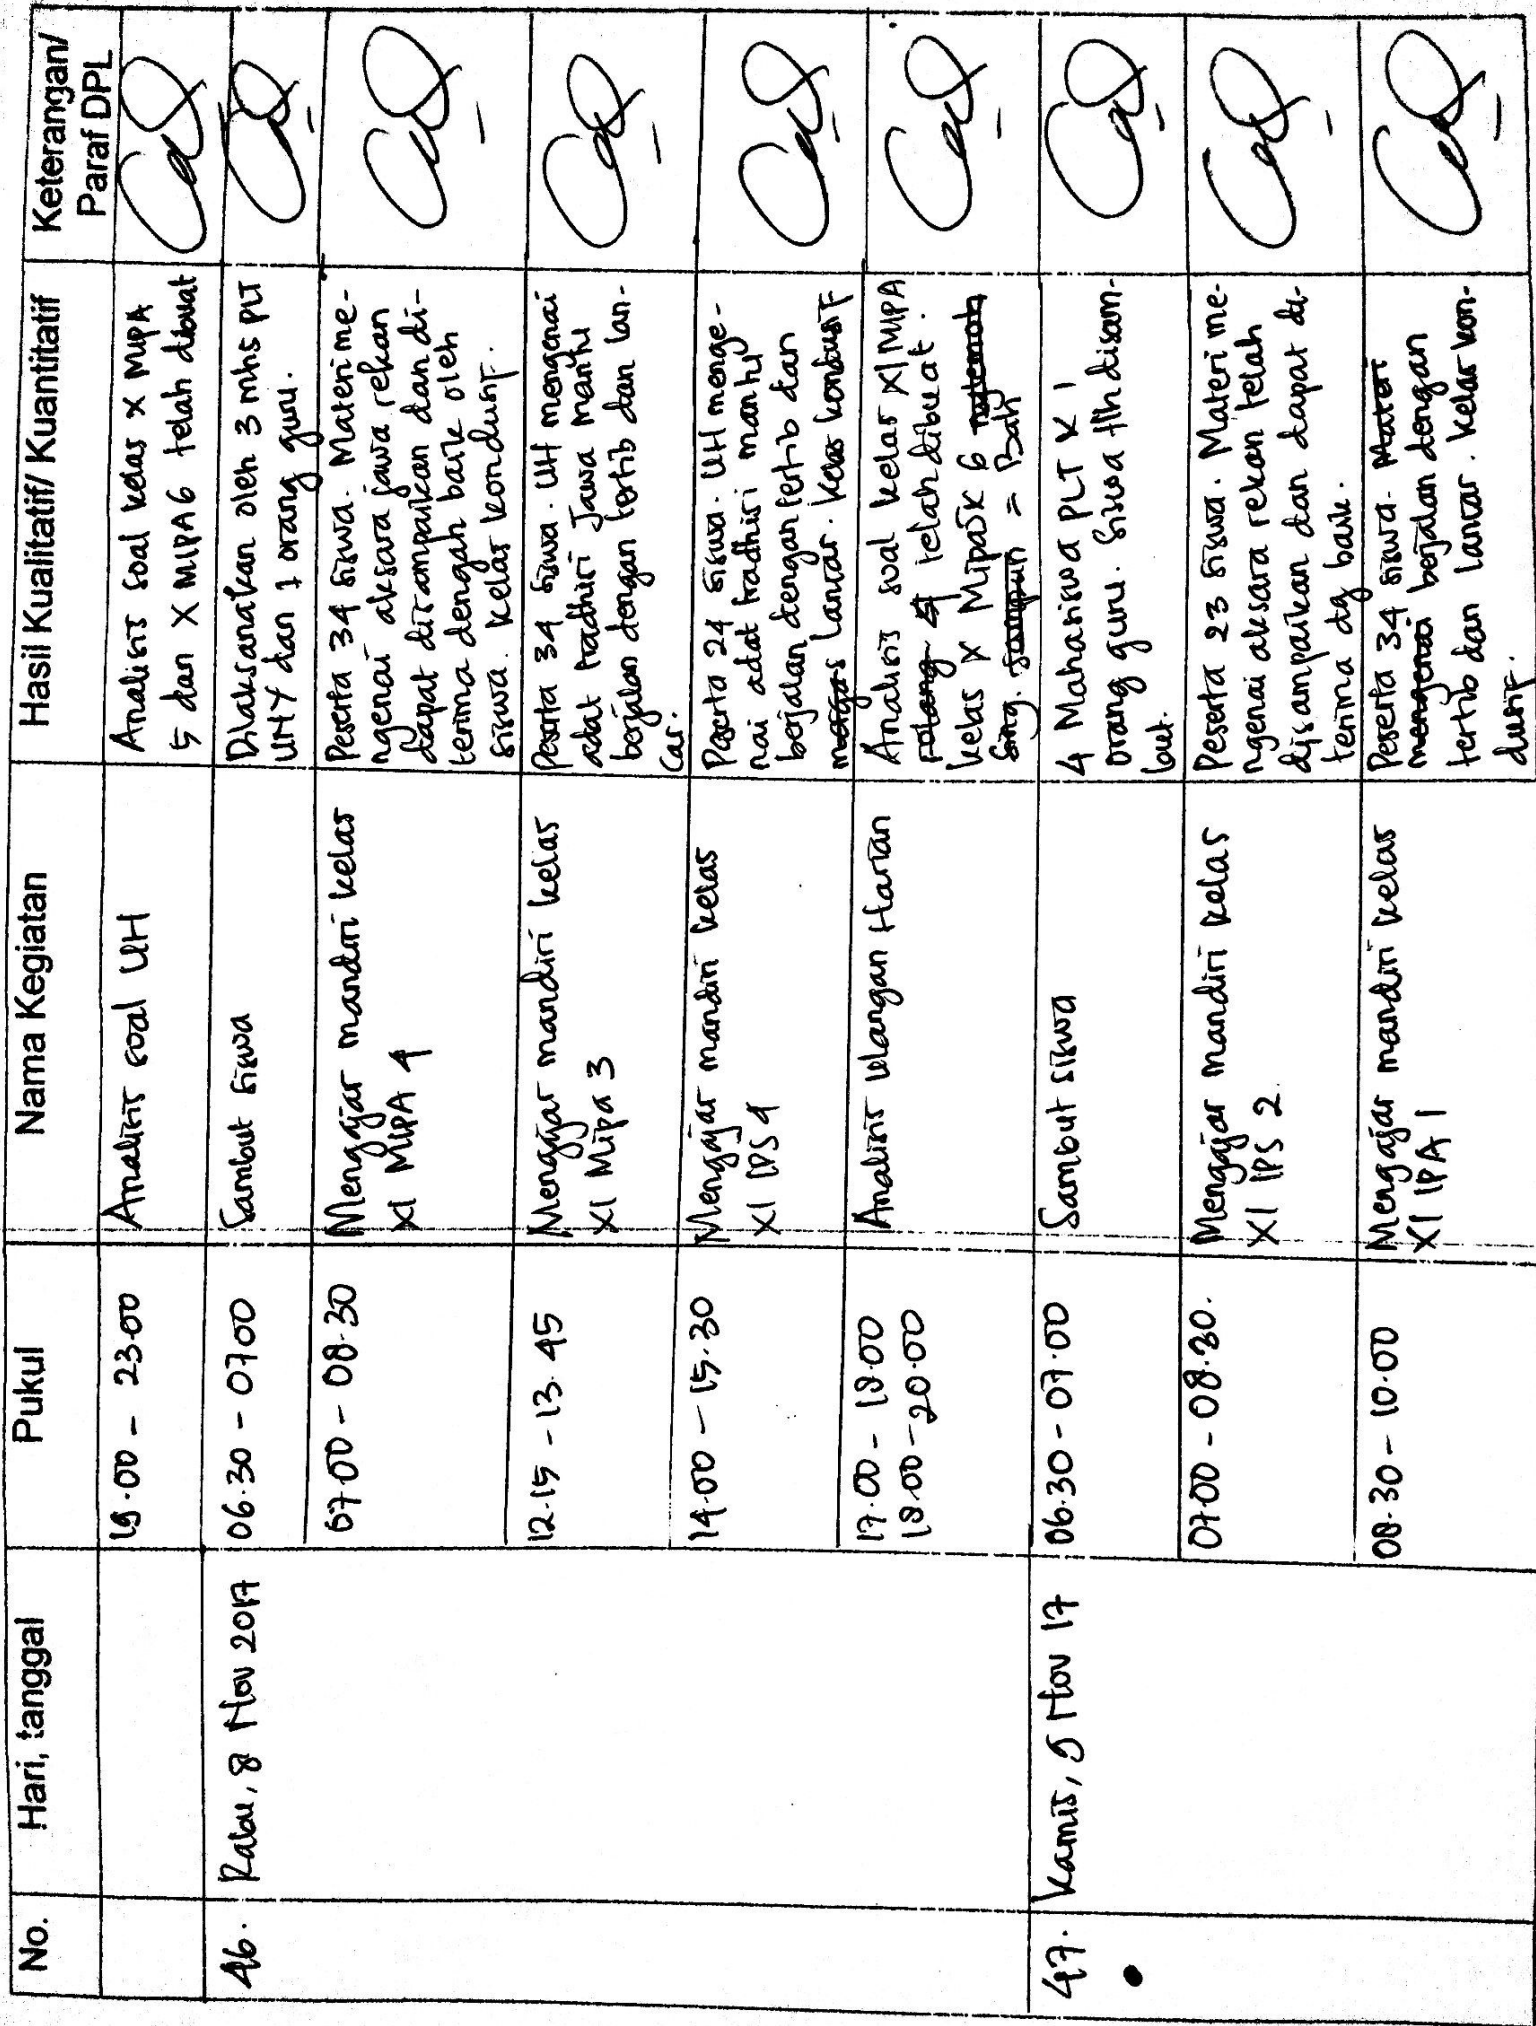 No.
Hari, tanggal
Pukul
Nama Kegiatan
Hasil Kualitatif/ Kuantitatif
Keterangan/
Paraf DPL
19.00 - 23.00
Analisis soal UH
Analisis soal kelas X MIPA
5 dan X MIPA 6 telah dibuat
46.
Rabu, 8 Nov 2017
06.30 - 07.00
Sambut siswa
Dilaksanakan oleh 3 mhs PLT
UNY dan 1 orang guru.
07.00 - 08.30
Mengajar mandiri kelas
XI MIPA 4
Peserta 34 siswa. Materi me-
ngenai aksara jawa rekan
dapat disampaikan dan di-
terima dengan baik oleh
siswa. Kelas kondusif.
12.15 - 13.45
Mengajar mandiri kelas
XI Mipa 3
Peserta 34 siswa. UH mengenai
adat tradhisi Jawa mantu
berjalan dengan tertib dan lan-
car.
14.00 - 15.30
Mengajar mandiri kelas
XI IPS 4
Peserta 24 siswa. UH menge-
nai adat tradhisi mantu
berjalan dengan tertib dan
lancar. Kelas kondusif
17.00 - 18.00
18.00 - 20.00
Analisis Ulangan Harian
Analisis soal kelas XI MIPA
telah dibuat.
kelas X Mipa 5 X 6
47.
Kamis, 9 Nov 17
06.30 - 07.00
Sambut siswa
4 Mahasiswa PLT & 1
orang guru. Siswa tlh disam-
but.
07.00 - 08.30.
Mengajar mandiri kelas
XI IPS 2
Peserta 23 siswa. Materi me-
ngenai aksara rekan telah
disampaikan dan dapat di-
terima dg baik.
08.30 - 10.00
Mengajar mandiri kelas
XI IPA 1
Peserta 34 siswa. Materi
mengenai berjalan dengan
tertib dan lancar. Kelas kon-
dusif.